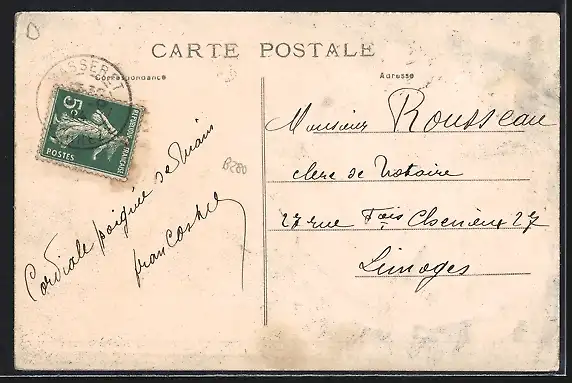 CARTE POSTALE
Correspondance
Adresse
5c
REPUBLIQUE FRANÇAISE
POSTES
B280
Cordiale poignée de main
Monsieur Rousseau
clerc de Notaire
27 rue Fois Chenieux 27
Limoges